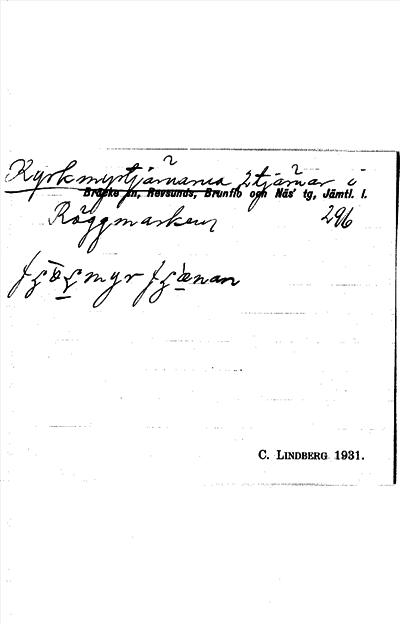 Kyrkmyrtjärnarna 2 tjärnar i
Bräcke sn, Revsunds, Brunflo och Näs' tg, Jämtl. l.
Röggmarken 296
C. LINDBERG 1931.